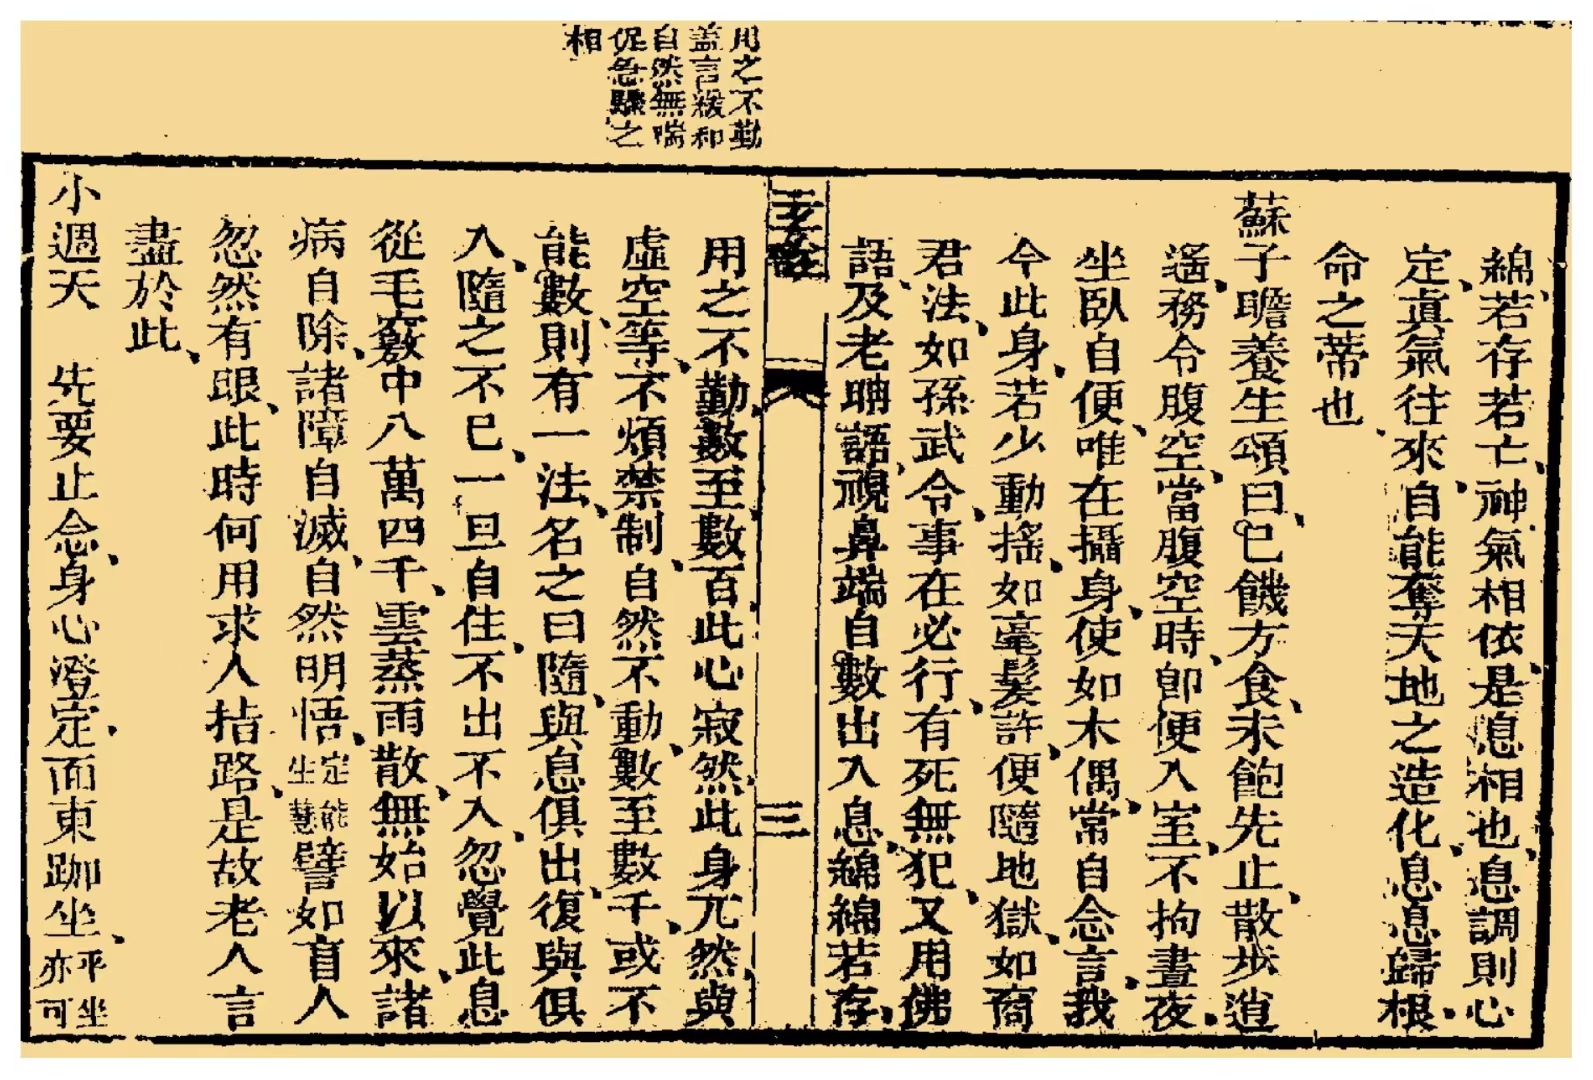 用之不勤
蓋言緩和
自然無喘
促急驟之
相
綿、若存若亡、神氣相依、是息相也、息調則心
定、真氣往來、自能奪天地之造化、息息歸根、
命之蒂也、
蘇子瞻養生頌曰、已饑方食、未飽先止、散步逍
遙、務令腹空、當腹空時、即便入室、不拘晝夜、
坐臥自便、唯在攝身、使如木偶、常自念言、我
今此身、若少動搖、如毫髮許、便隨地獄、如商
君法、如孫武令、事在必行、有死無犯、又用佛
語、及老聃語、視鼻端自數出入息、綿綿若存、
三
用之不勤、數至數百、此心寂然、此身兀然、與
虛空等、不煩禁制、自然不動、數至數千、或不
能數、則有一法、名之曰隨、與息俱出、復與俱
入、隨之不已、一旦自住、不出不入、忽覺此息
從毛竅中八萬四千、雲蒸雨散、無始以來、諸
病自除、諸障自滅、自然明悟、定能生慧譬如盲人
忽然有眼、此時何用求人指路、是故老人言
盡於此、
小週天 先要止念、身心澄定、面東跏坐、平坐亦可